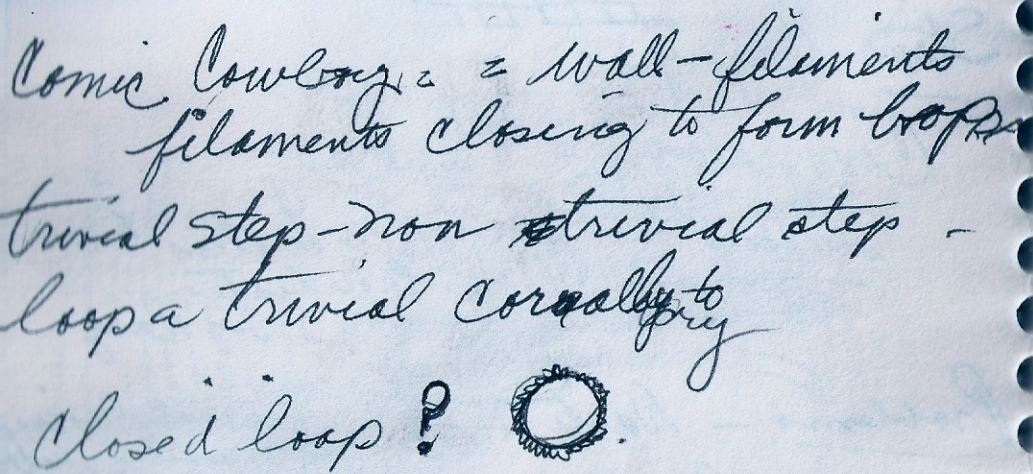 Comic Cowling = = wall-filaments
filaments closing to form loops
trivial step-non trivial step -
loop a trivial to
closed loop ?